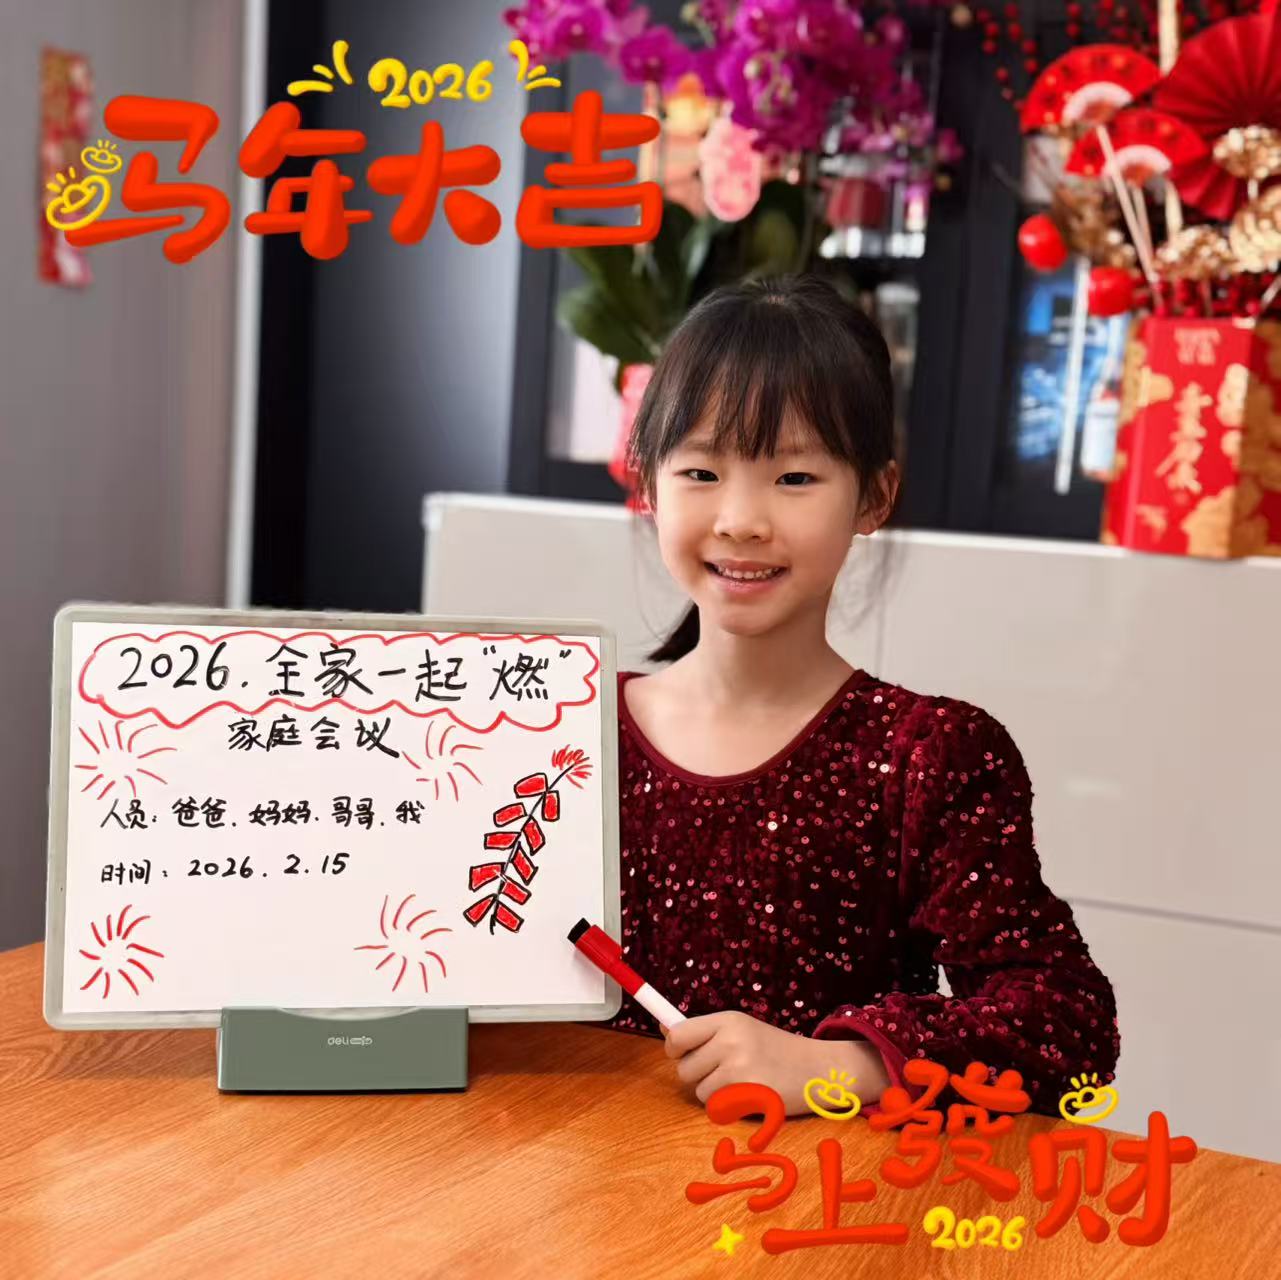 2026
马年大吉
2026.全家一起“燃”
家庭会议
人员：爸爸.妈妈.哥哥.我
时间：2026.2.15
deli
马上發财
2026